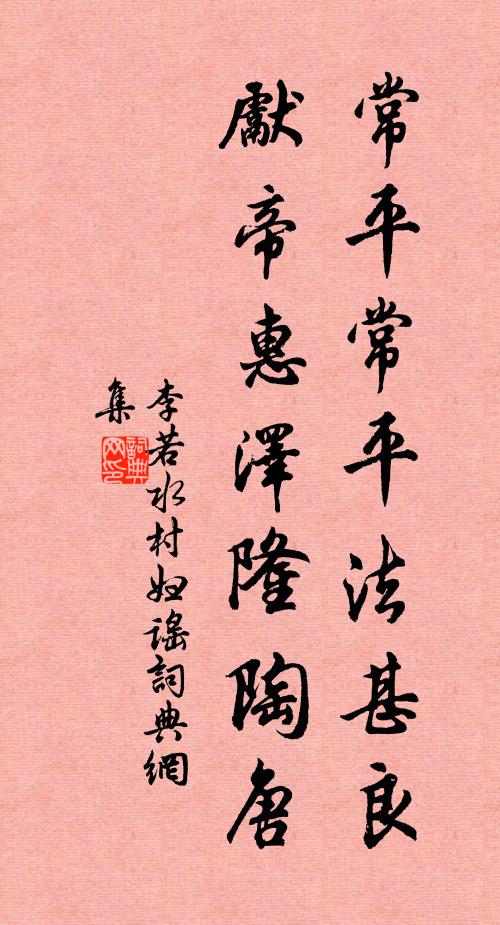 常平常平法甚良
獻帝惠澤隆陶唐
李若水村婦謠詞典網
集
詞典网印